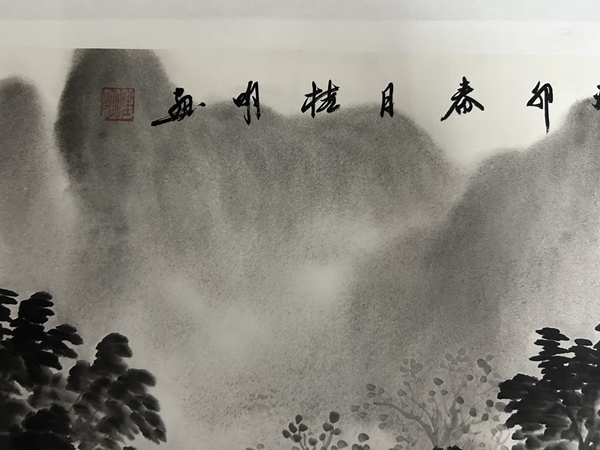 卯春月桂明画